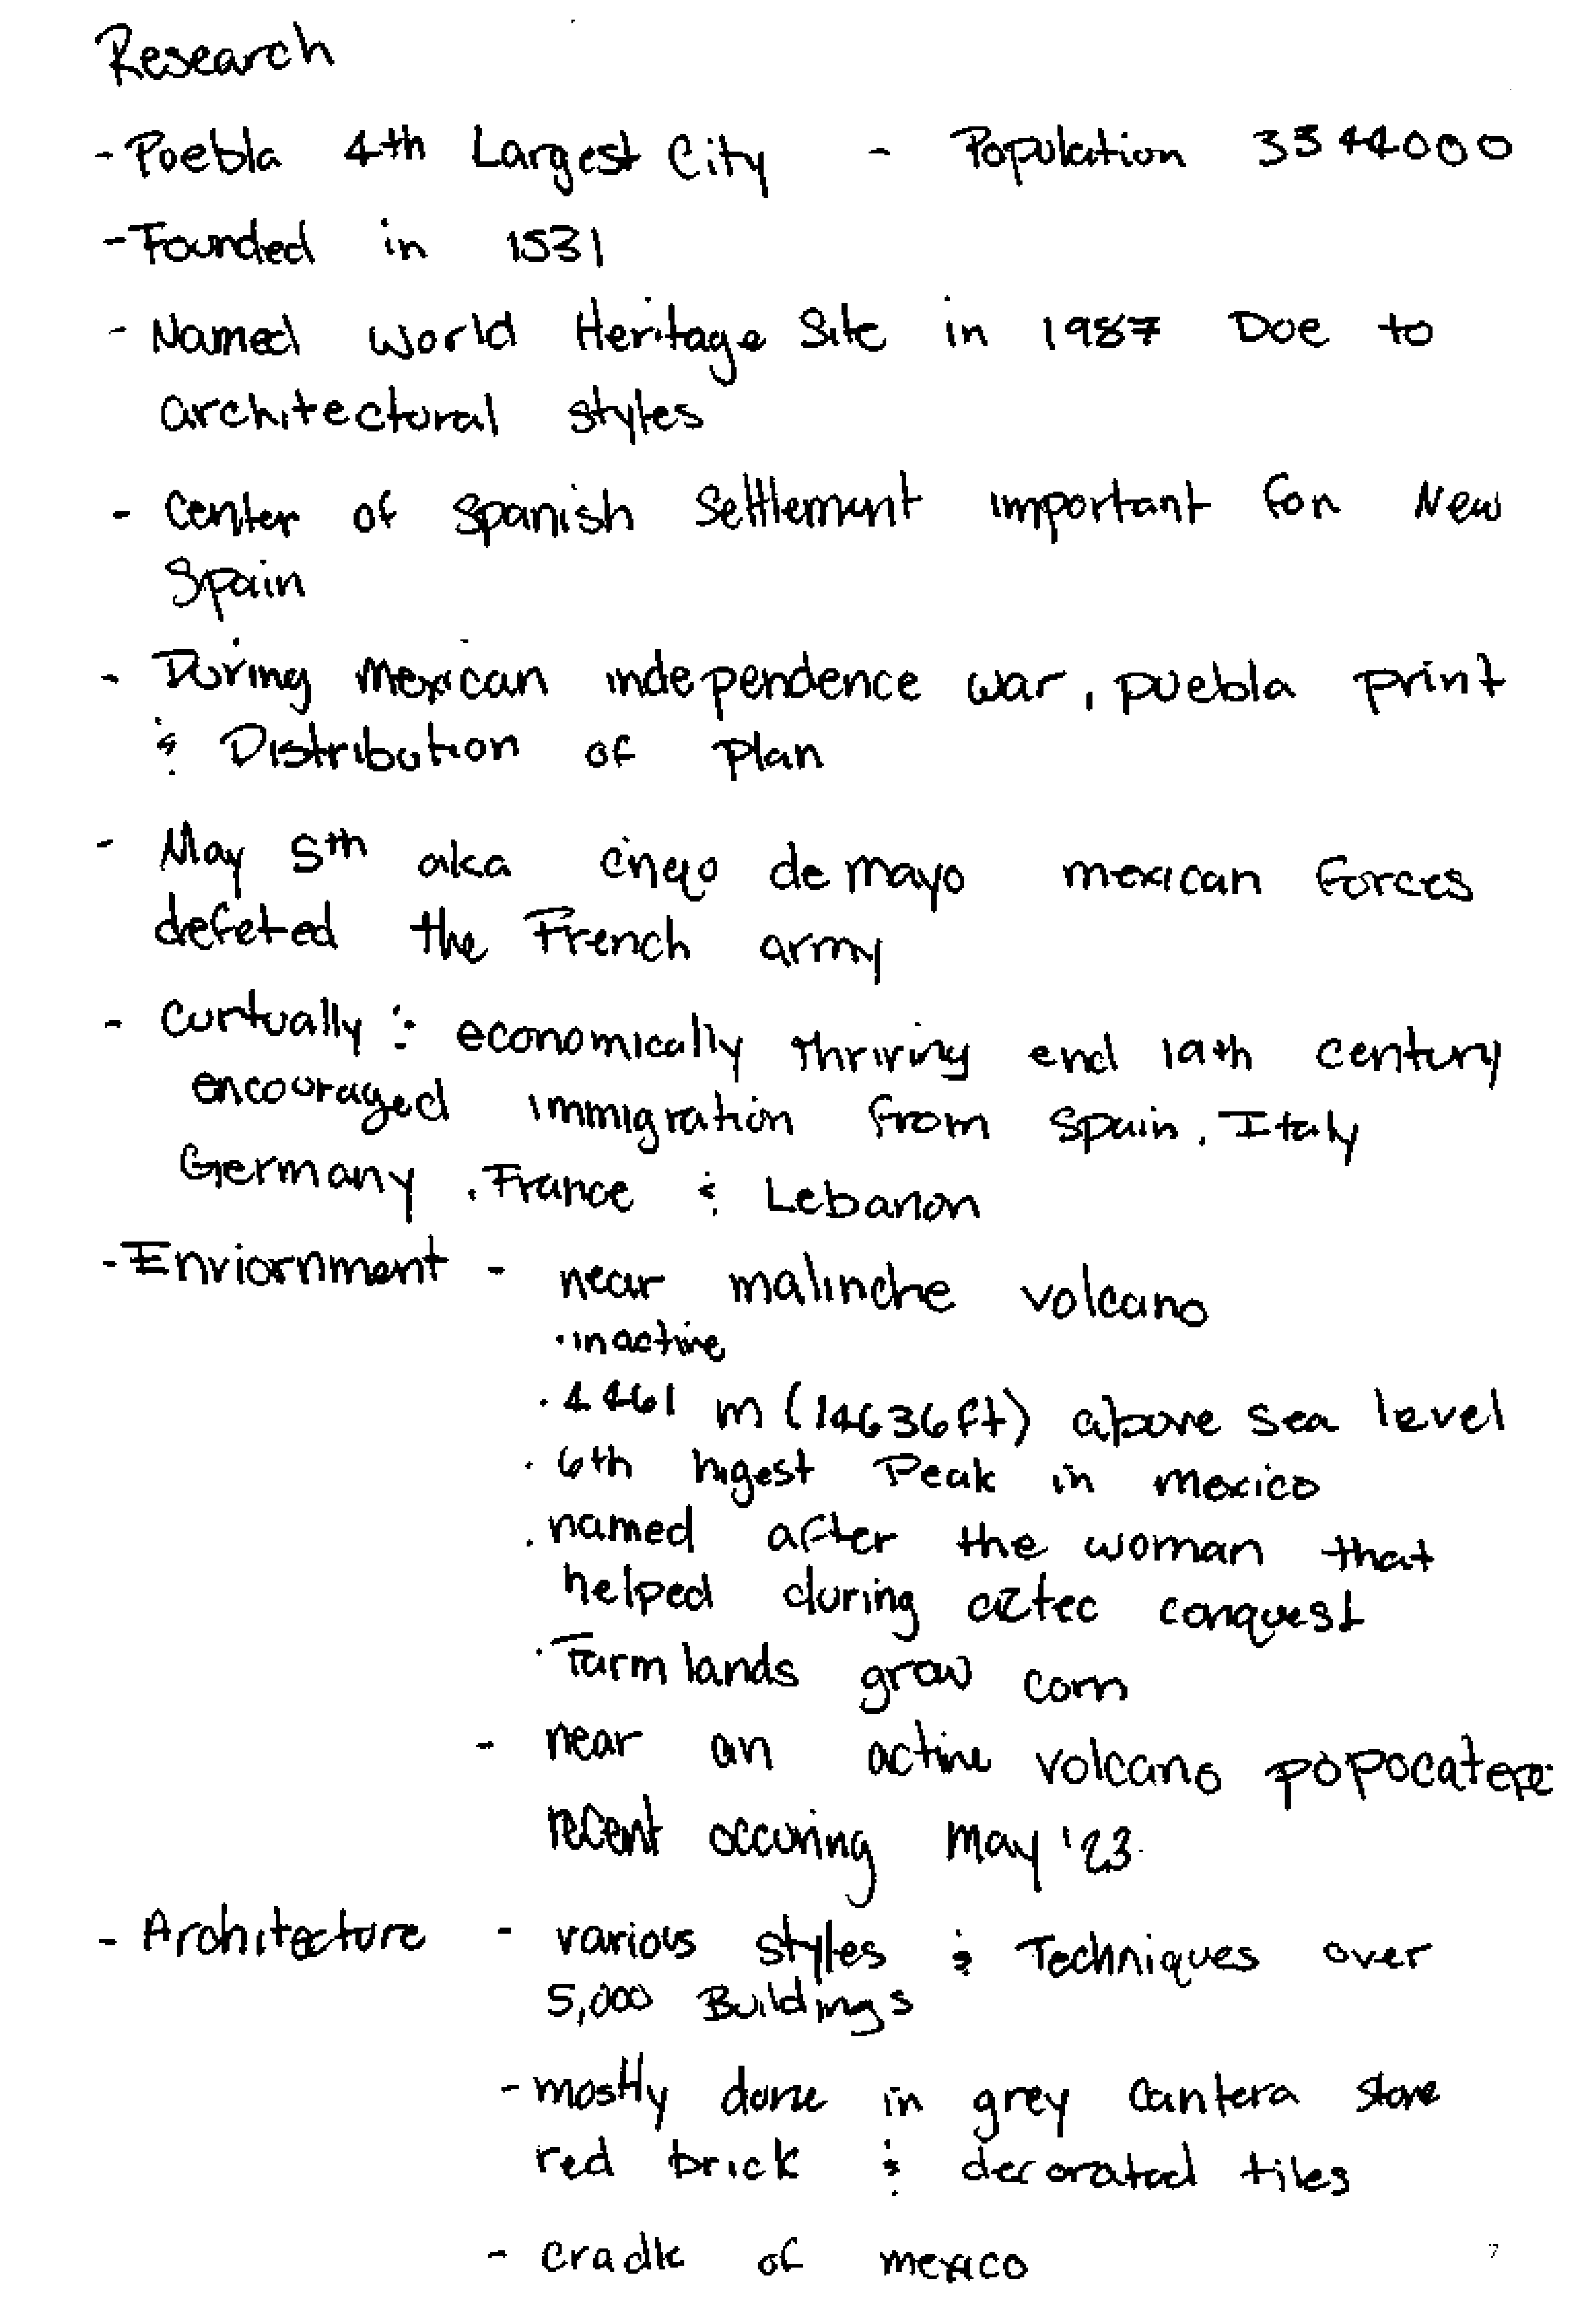 Research
- Poebla 4th Largest City - Population 3344000
- Founded in 1531
- Named World Heritage Site in 1987 Doe to
architectural styles
- Center of Spanish Settlement important for New
Spain
- During Mexican independence war, puebla print
& Distribution of Plan
- May 5th aka cinco de mayo mexican forces
defeted the French army
- Curtually & economically thriving end 19th century
encouraged immigration from Spain, Italy
Germany, France & Lebanon
- Enviornment - near malinche volcano
· inactive
· 4461 m (14636ft) above sea level
· 6th higest Peak in mexico
· named after the woman that
helped during aztec conquest
· Farm lands grow corn
- near an active volcano popocatepe
recent occuring may '23
- Architecture - various styles & Techniques over
5,000 Buildings
- mostly done in grey cantera stone
red brick & decorated tiles
- cradle of mexico
7